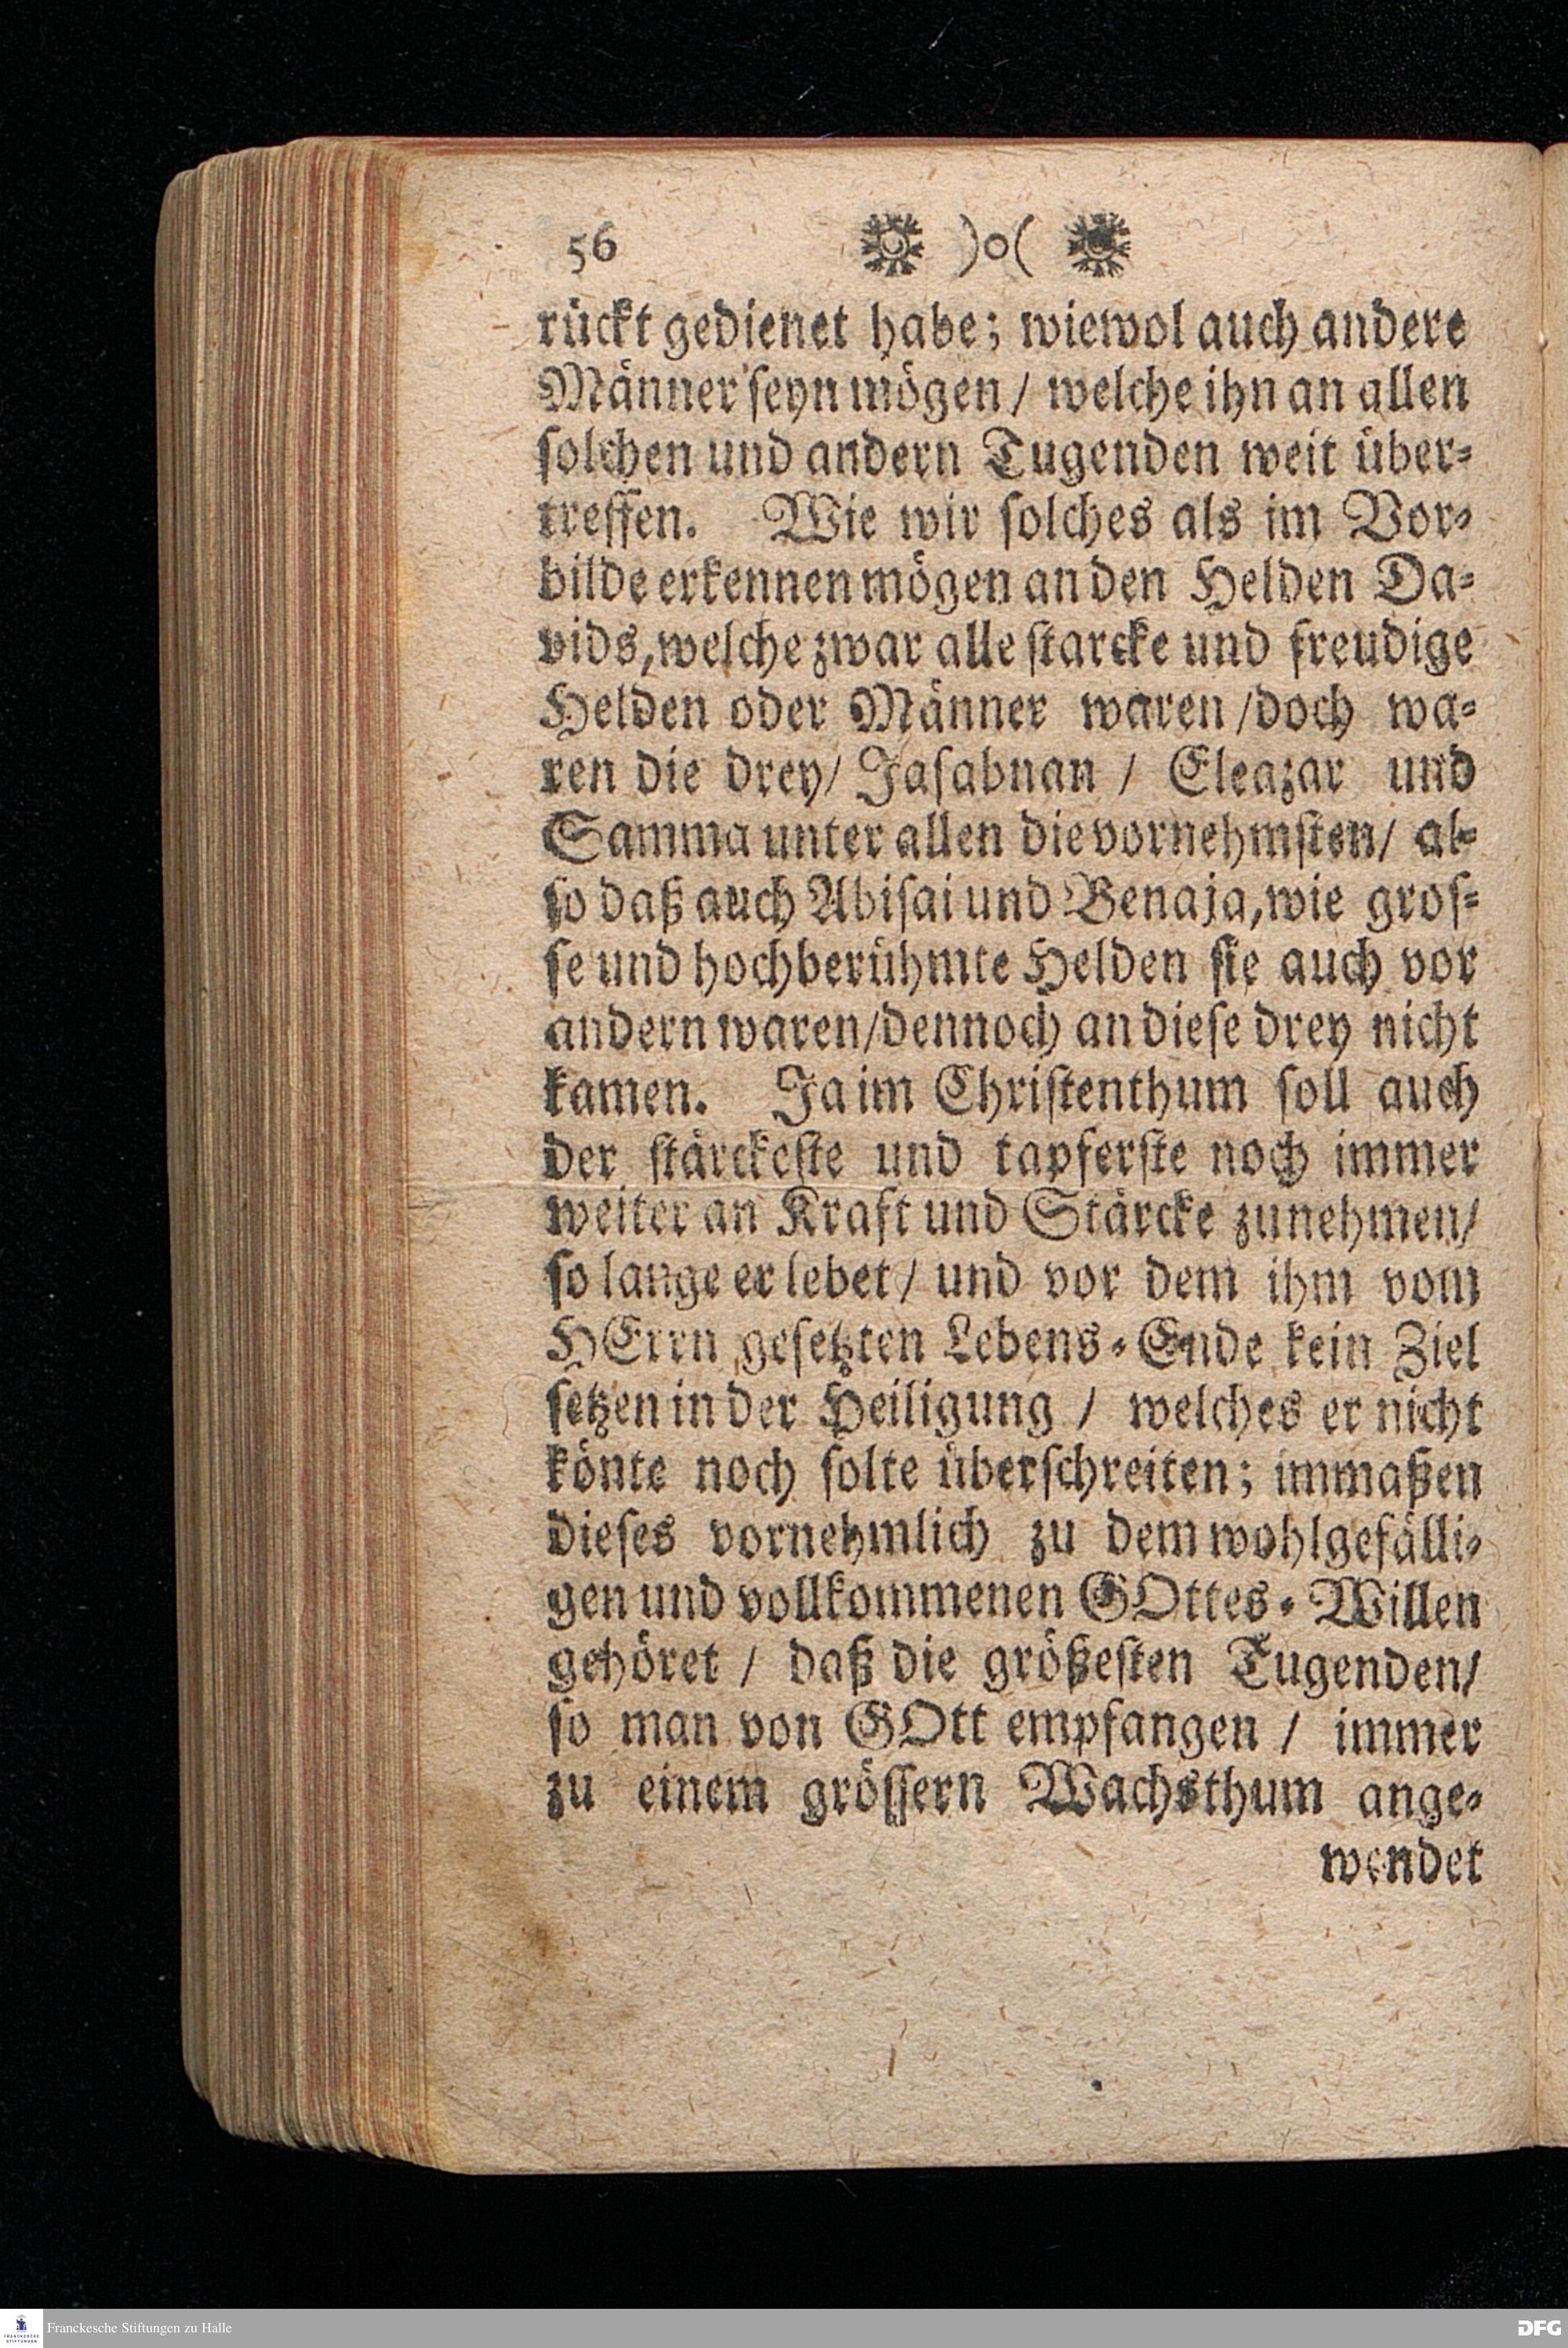 56 )o(
rückt gedienet habe; wiewol auch andere
Männer ſeyn mögen / welche ihn an allen
ſolchen und andern Tugenden weit über-
treffen. Wie wir ſolches als im Vor-
bilde erkennen mögen an den Helden Da-
vids, welche zwar alle ſtarcke und freudige
Helden oder Männer waren / doch wa-
ren die drey / Jaſabnan / Eleazar und
Samma unter allen die vornehmſten / al-
ſo daß auch Abiſai und Benaja, wie groſ-
ſe und hochberühmte Helden ſie auch vor
andern waren / dennoch an dieſe drey nicht
kamen. Ja im Chriſtenthum ſoll auch
der ſtärckeſte und tapferſte noch immer
weiter an Kraft und Stärcke zunehmen /
ſo lange er lebet / und vor dem ihm vom
HErrn geſetzten Lebens-Ende kein Ziel
ſetzen in der Heiligung / welches er nicht
könte noch ſolte überſchreiten; immaßen
dieſes vornehmlich zu dem wohlgefälli-
gen und vollkommenen GOttes-Willen
gehöret / daß die größeſten Tugenden /
ſo man von GOtt empfangen / immer
zu einem gröſſern Wachsthum ange-
wendet
FRANCKESCHE STIFTUNGEN
Franckesche Stiftungen zu Halle
DFG